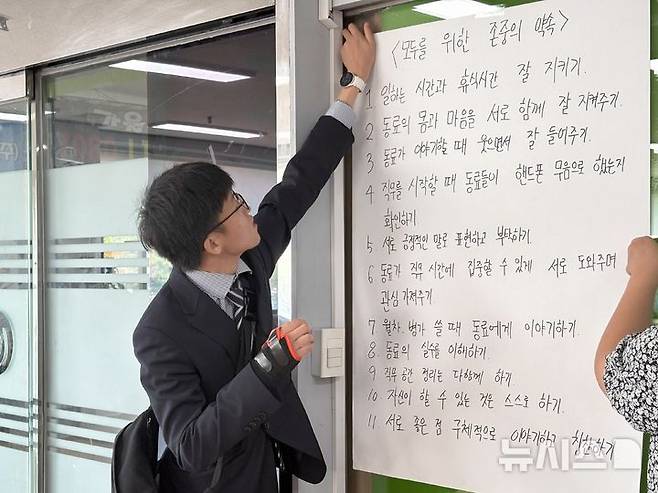 <모두를 위한 존중의 약속>
1 일하는 시간과 휴식시간 잘 지키기.
2 동료의 몸과 마음을 서로 함께 잘 지켜주기.
3 동료가 이야기할 때 웃으면서 잘 들어주기.
4 직무를 시작할 때 동료들이 핸드폰 무음으로 했는지
확인하기
5 서로 긍정적인 말로 표현하고 부탁하기.
6 동료가 직무 시간에 집중할 수 있게 서로 도와주며
관심 가져주기.
7 월차·병가 쓸 때 동료에게 이야기하기
8. 동료의 실수를 이해하기.
9 직무 공간 정리는 다함께 하기
10. 자신이 할 수 있는 것은 스스로 하기.
11. 서로 좋은 점 구체적으로 이야기하고 칭찬하기
뉴시스